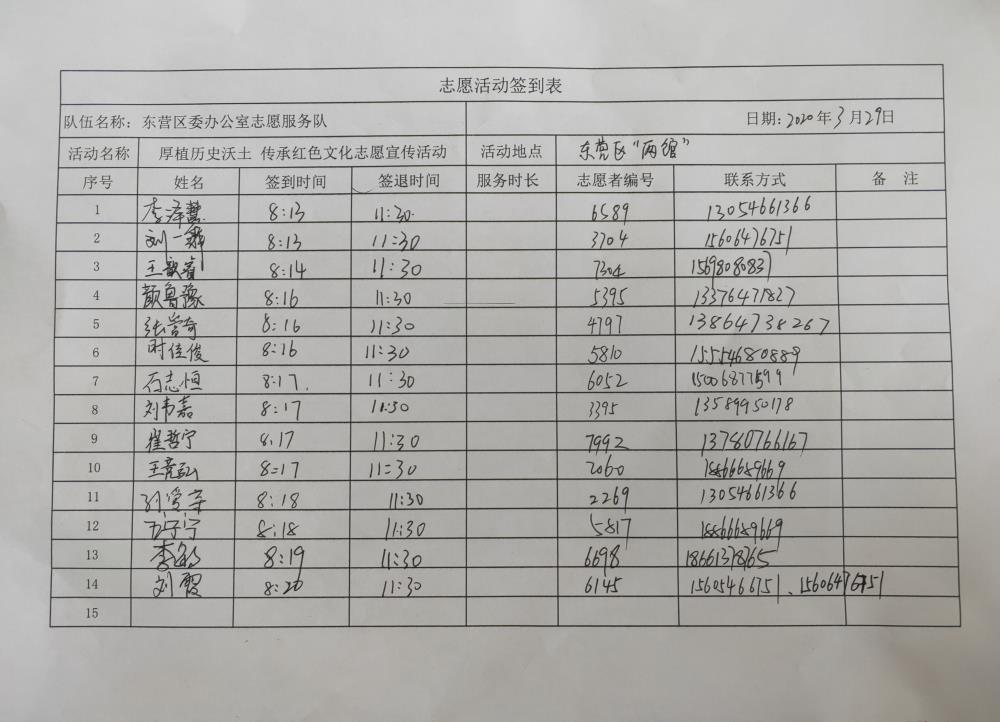 志愿活动签到表
队伍名称：东营区委办公室志愿服务队 日期：2020年3月29日
活动名称 厚植历史沃土 传承红色文化志愿宣传活动 活动地点 东营区“两馆”
序号 姓名 签到时间 签退时间 服务时长 志愿者编号 联系方式 备 注
1 李泽慧 8:13 11:30 6589 13054661366
2 刘一 8:13 11:30 3704 15606476751
3 王睿 8:14 11:30 7304
4 颜鲁豫 8:16 11:30 5395 13376471827
5 张崇奇 8:16 11:30 4797 13864738267
6 时佳俊 8:16 11:30 5810 15554680889
7 石志恒 8:17 11:30 6052 15006877599
8 刘韦嘉 8:17 11:30 3395 13589950178
9 崔哲宁 8:17 11:30 7992 13780766167
10 8:17 11:30 2060 18866689669
11 8:18 11:30 2269 13054661366
12 8:18 11:30 5817 18866689669
13 李 8:19 11:30 6698 18661378765
14 刘霞 8:20 11:30 6145 15605466751、15606476751
15